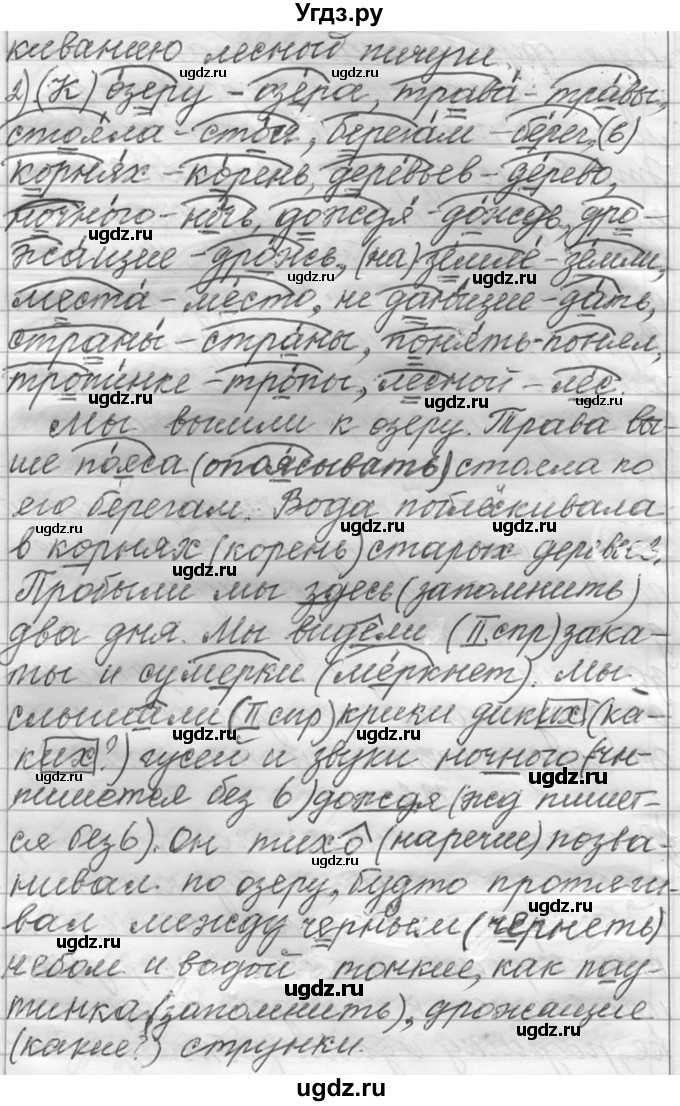 Угдз.ру
киванию лесной пичуги.
2) (К) озеру - озёра, трава́ - тра́вы,
стоя́ла - сто́я, берега́м - бе́рег, (в)
корня́х - ко́рень, дере́вьев - де́рево,
ночно́го - но́чь, дождя́ - до́ждь, дро-
жа́щие - дро́жь, (на) земле́ - зе́мли,
места́ - ме́сто, не да́вшие - да́ть,
страны́ - стра́ны, поня́ть - понял,
тропи́нке - тро́пы, лесно́й - ле́с.
Мы вышли к озеру. Трава вы-
ше по́яса (опоя́сывать) стояла по
его берегам. Вода поблёскивала
в корнях (корень) старых деревьев.
Пробыли мы здесь (запомнить)
два дня. Мы видели (II спр) зака-
ты и сумерки (ме́ркнет). Мы
слышали (II спр) крики диких (ка-
ких?) гусей и звуки ночного (чн-
пишется без ь) дождя (жд пишет-
ся без ь). Он тихо (наречие) позва-
нивал по озеру, будто протяги-
вал между черным (чернеть)
небом и водой тонкие, как пау-
тинка (запомнить), дрожащие
(какие?) струнки.
ugdz.ru